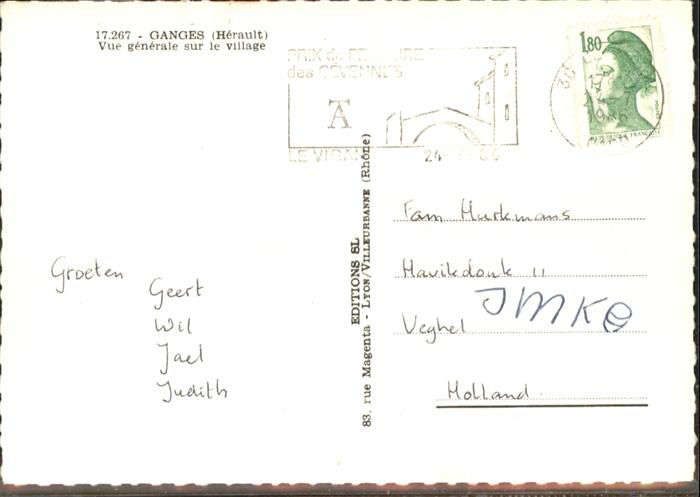 17.267 - GANGES (Hérault)
Vue générale sur le village
PRIX de PEINTURE
des CÉVENNES
LE VIGAN
24 - 7 - 86
1,80
1986
EDITIONS SL
83, rue Magenta - LYON/VILLEURBANNE (Rhône)
Groeten
Geert
Wil
Jael
Judith
Fam Hurkmans
Havikdonk 11
Veghel
Holland